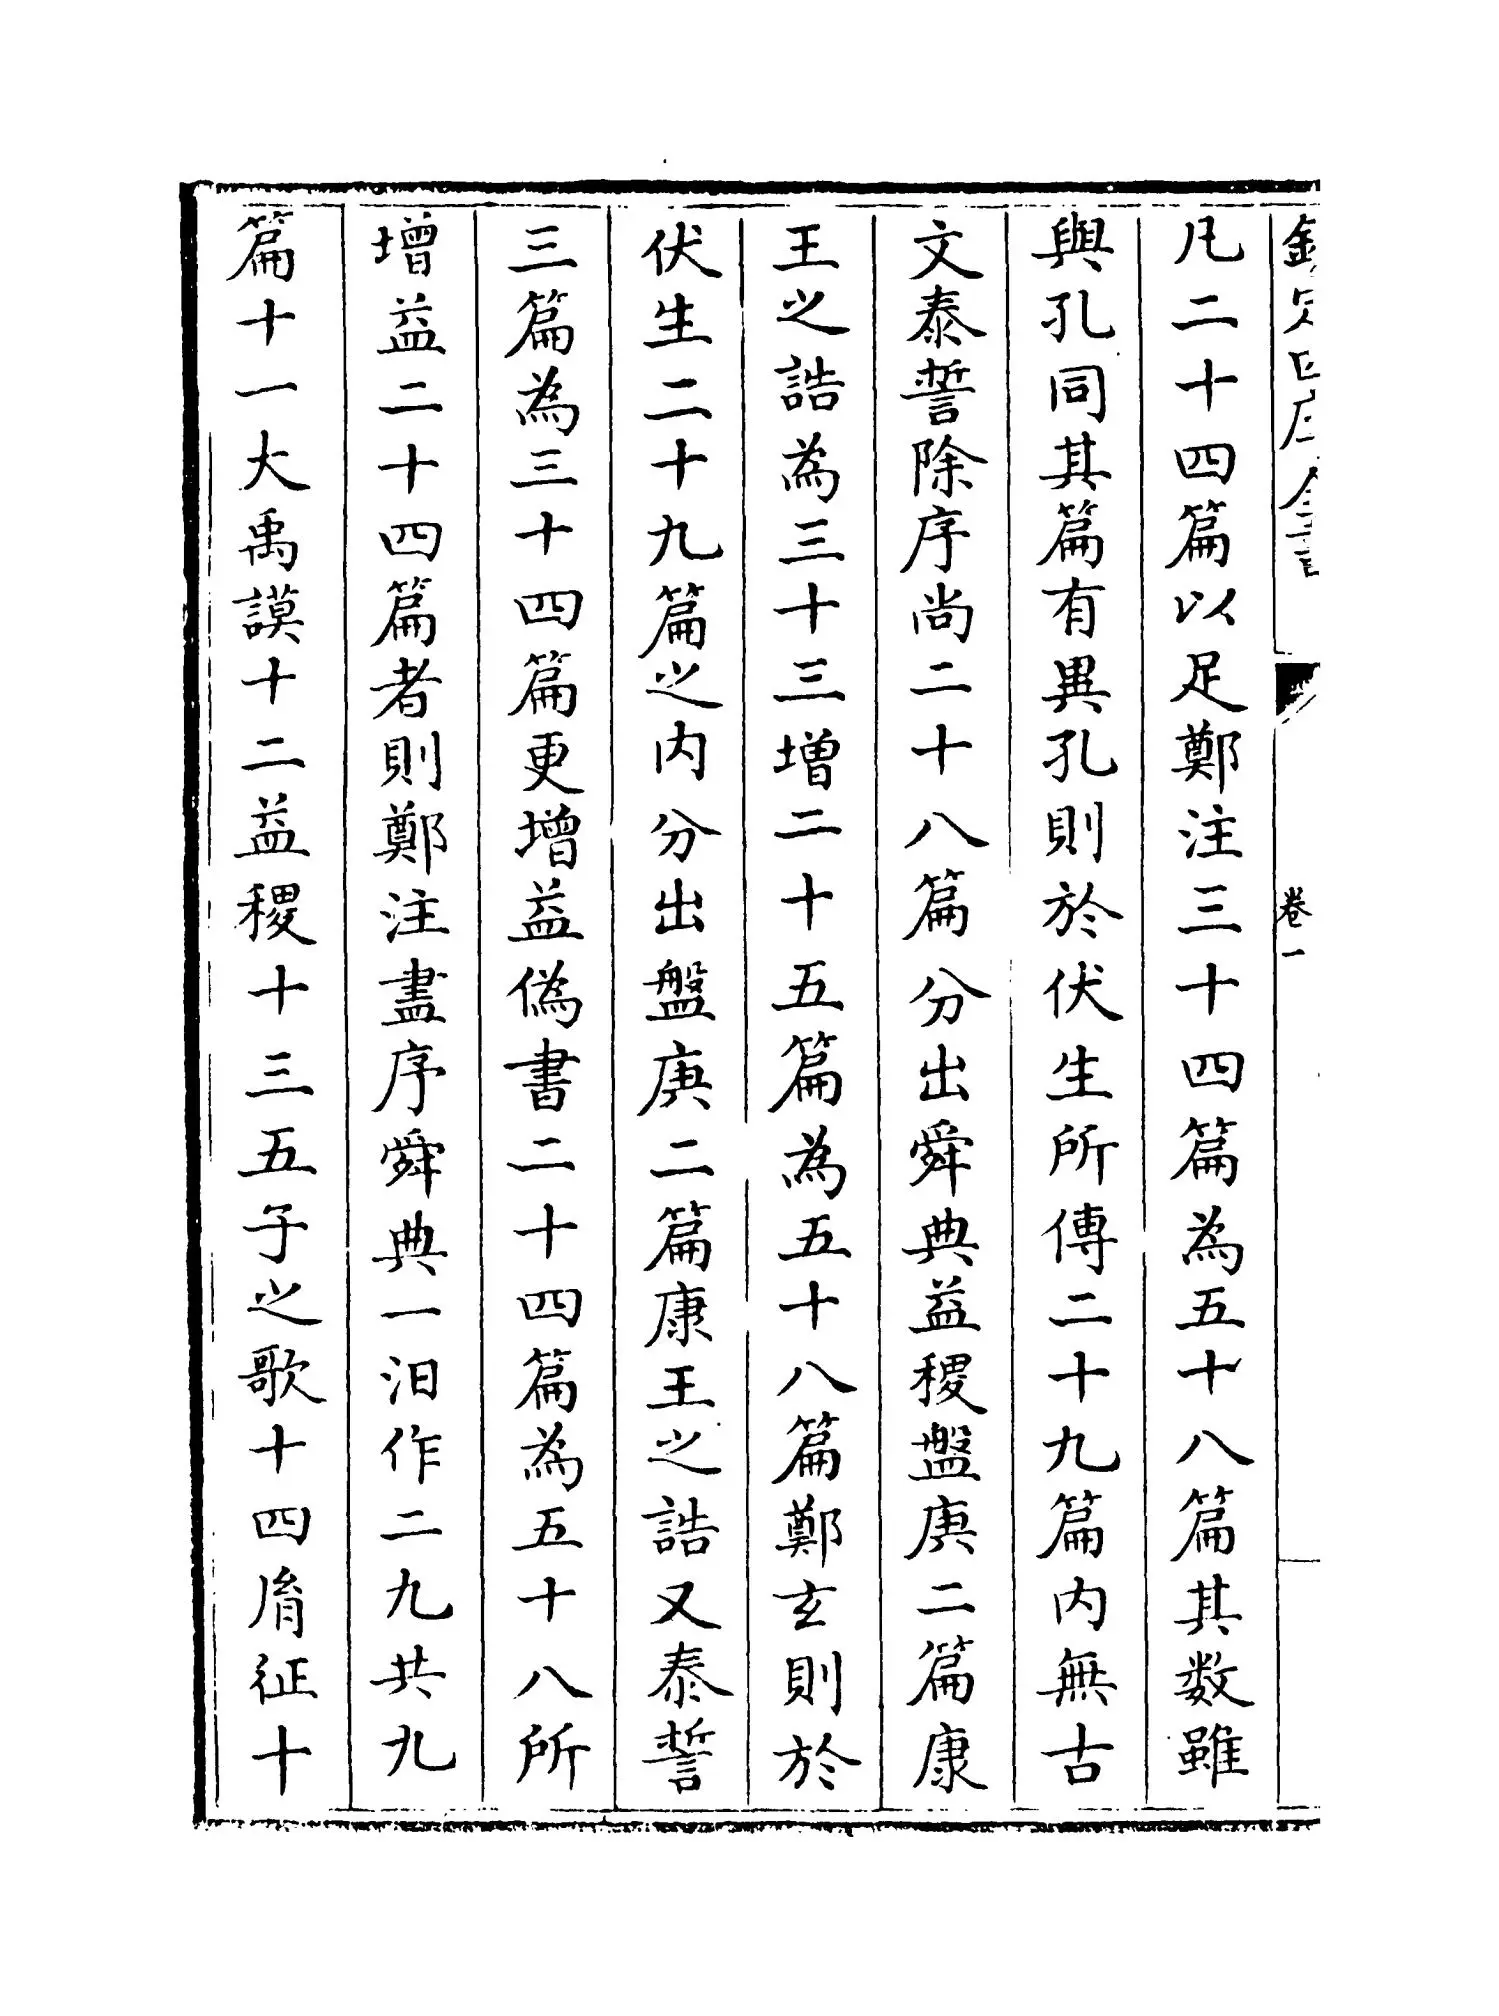 欽定四庫全書 卷一
凡二十四篇以足鄭注三十四篇為五十八篇其數雖
與孔同其篇有異孔則於伏生所傳二十九篇内無古
文泰誓除序尚二十八篇分出舜典益稷盤庚二篇康
王之誥為三十三增二十五篇為五十八篇鄭玄則於
伏生二十九篇之内分出盤庚二篇康王之誥又泰誓
三篇為三十四篇更增益偽書二十四篇為五十八所
增益二十四篇者則鄭注書序舜典一汨作二九共九
篇十一大禹謨十二益稷十三五子之歌十四胤征十